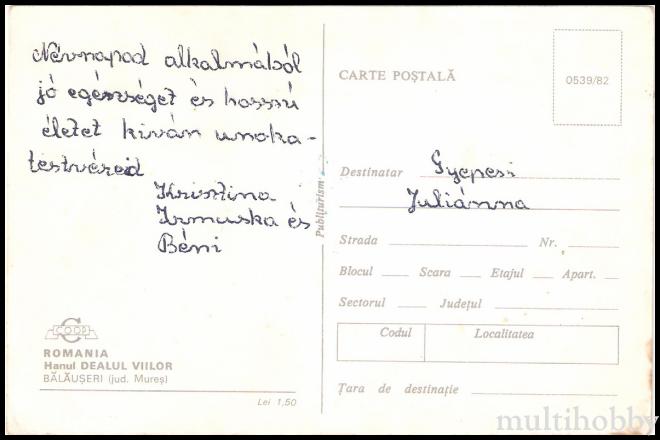 Névnapod alkalmából
jó egészséget és hosszú
életet kíván unoka-
testvéreid
Krisztina
Irmuska és
Béni
COOP
ROMANIA
Hanul DEALUL VIILOR
BĂLĂUȘERI (jud. Mureș)
Lei 1,50
Publiturism
CARTE POȘTALĂ
0539/82
Destinatar Gyepesi
Juliánna
Strada Nr.
Blocul Scara Etajul Apart.
Sectorul Județul
Codul Localitatea
Țara de destinație
multihobby